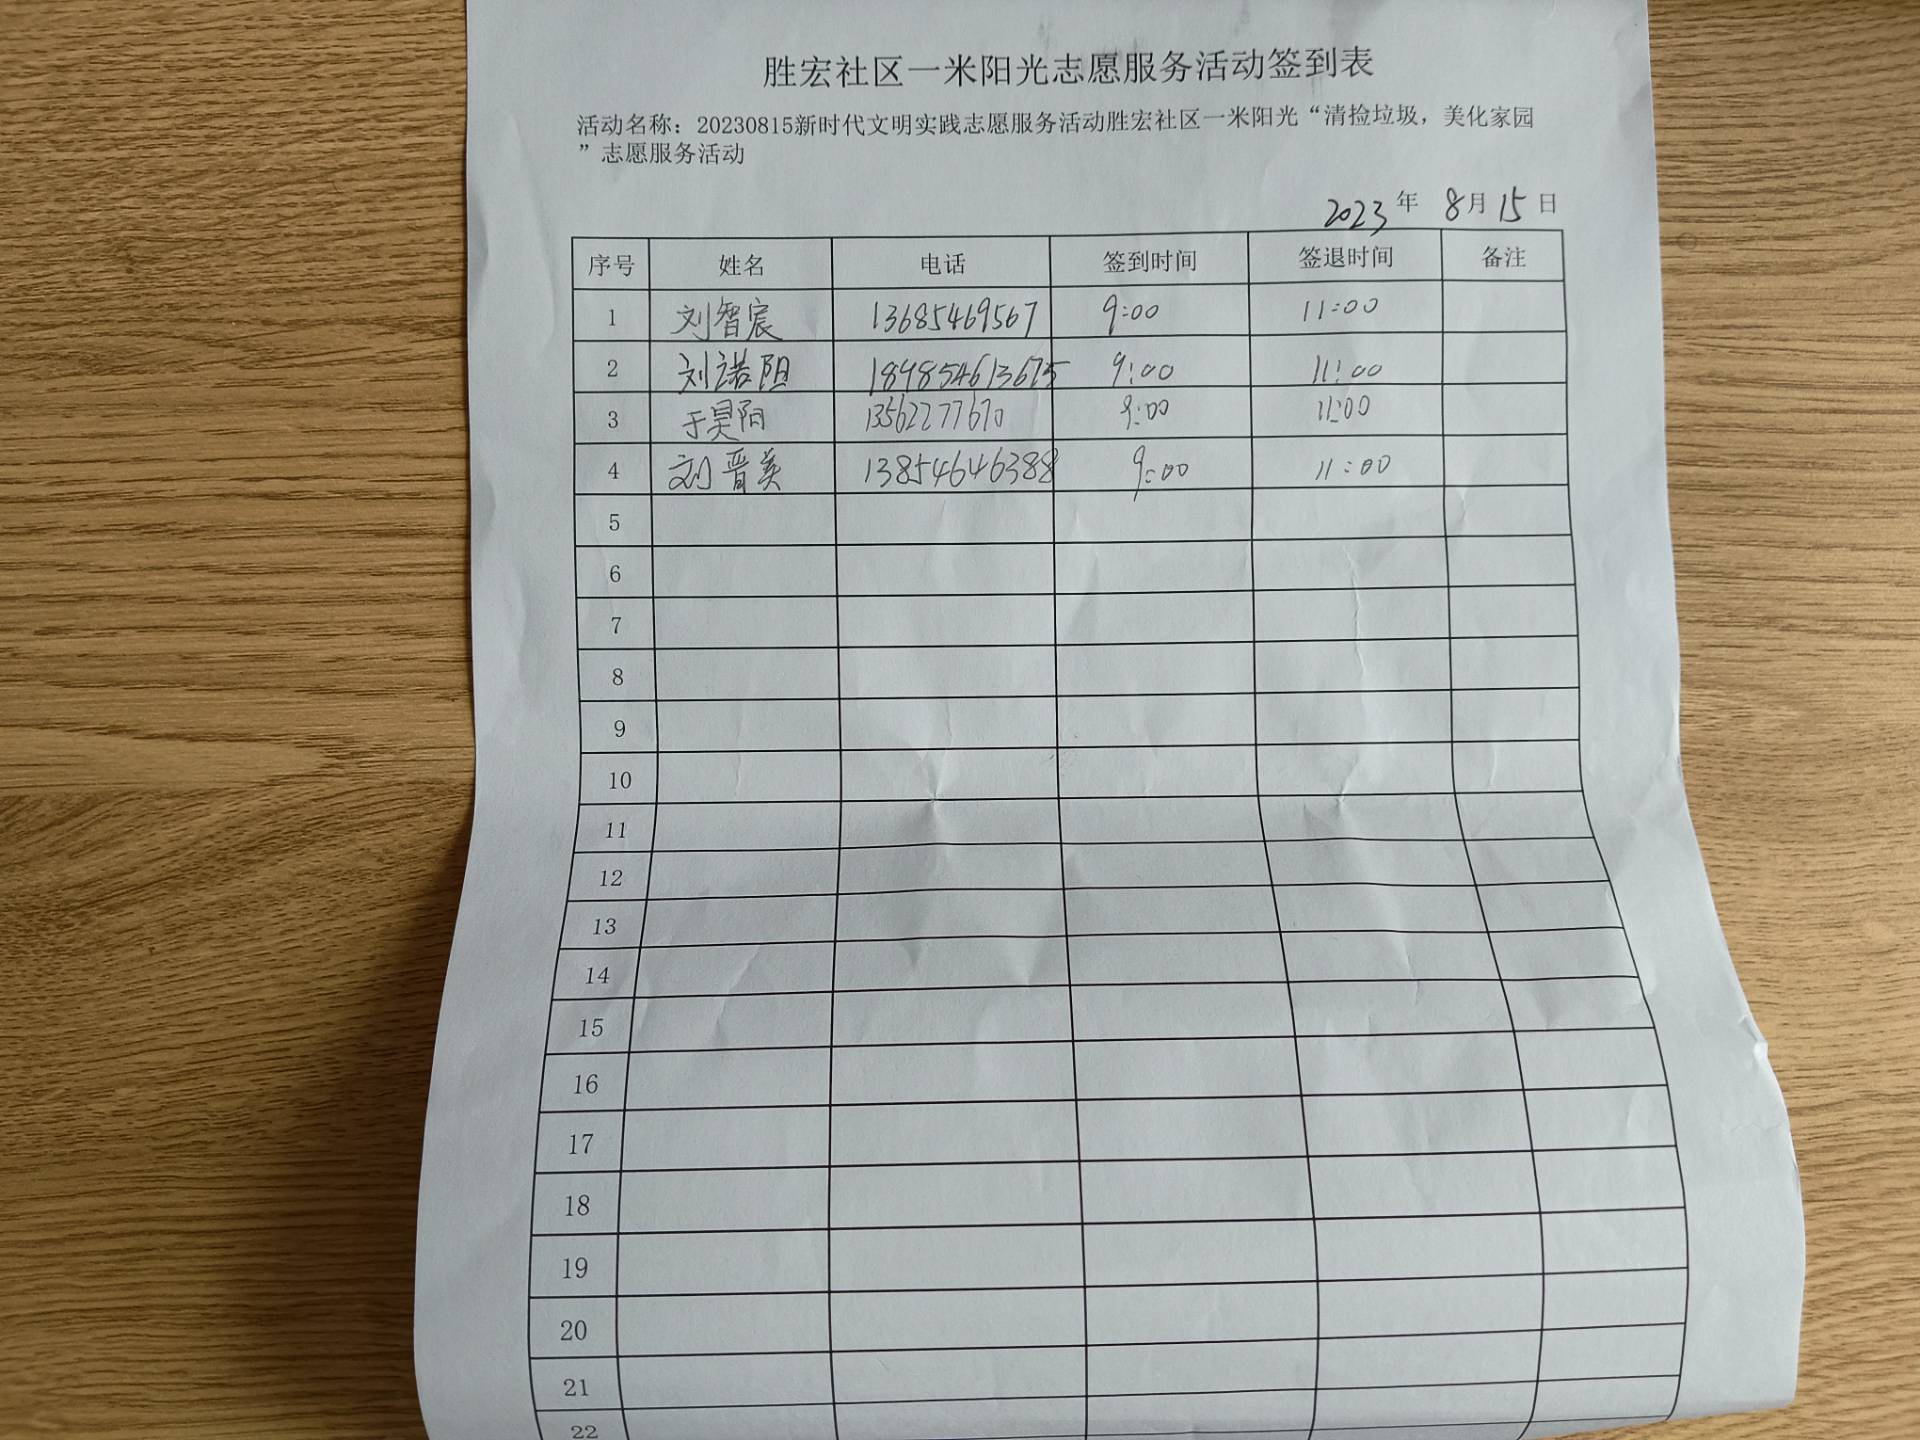 胜宏社区一米阳光志愿服务活动签到表
活动名称：20230815新时代文明实践志愿服务活动胜宏社区一米阳光“清捡垃圾，美化家园
”志愿服务活动
2023年 8月15日
序号 姓名 电话 签到时间 签退时间 备注
1 刘智宸 13685469567 9:00 11:00
2 刘诺阳 9:00 11:00
3 于昊阳 13562277670 9:00 11:00
4 刘晋美 13854646388 9:00 11:00
5
6
7
8
9
10
11
12
13
14
15
16
17
18
19
20
21
22